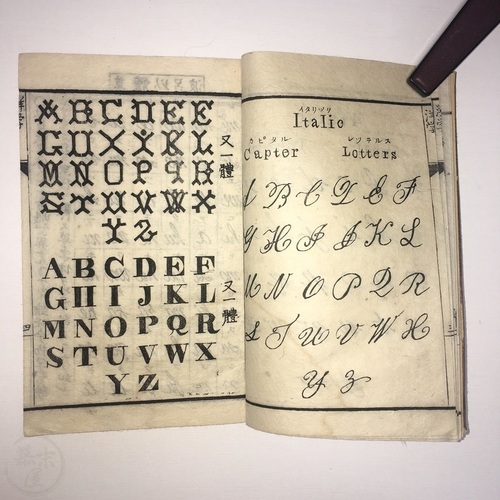 A B C D E F
G H I J K L
M N O P Q R
S T U V W X
Y Z
又一體
A B C D E F
G H I J K L
M N O P Q R
S T U V W X
Y Z
又一體
イタリツリ
Italic
カピタル レツテルス
Capter Lotters
A B C D E F
G H I J K L
M N O P Q R
S T U V W X
Y Z